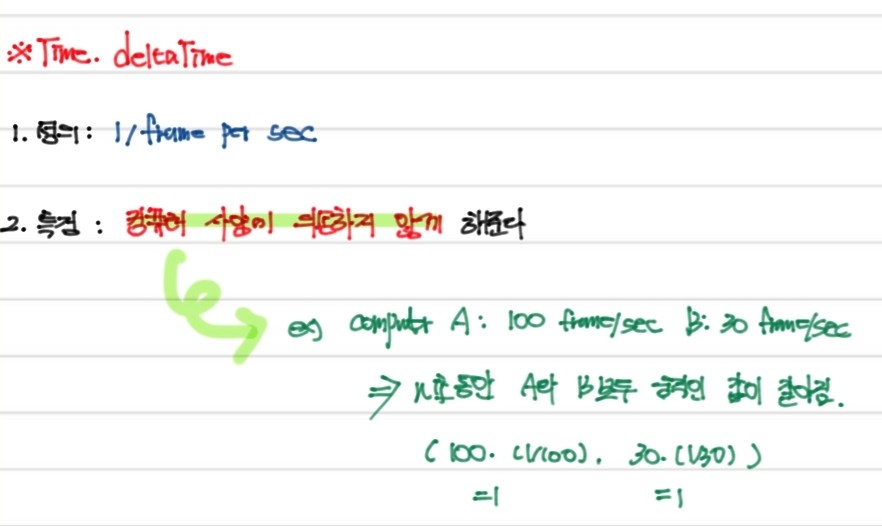 ※ Time. deltaTime
1. 정의: 1/frame per sec
2. 특징 : 컴퓨터 사양에 의존하지 않게 해준다
ex) computer A: 100 frame/sec B: 30 frame/sec
⇒ n초동안 A와 B모두 움직인 값이 같아짐.
(100·(1/100), 30·(1/30))
=1 =1